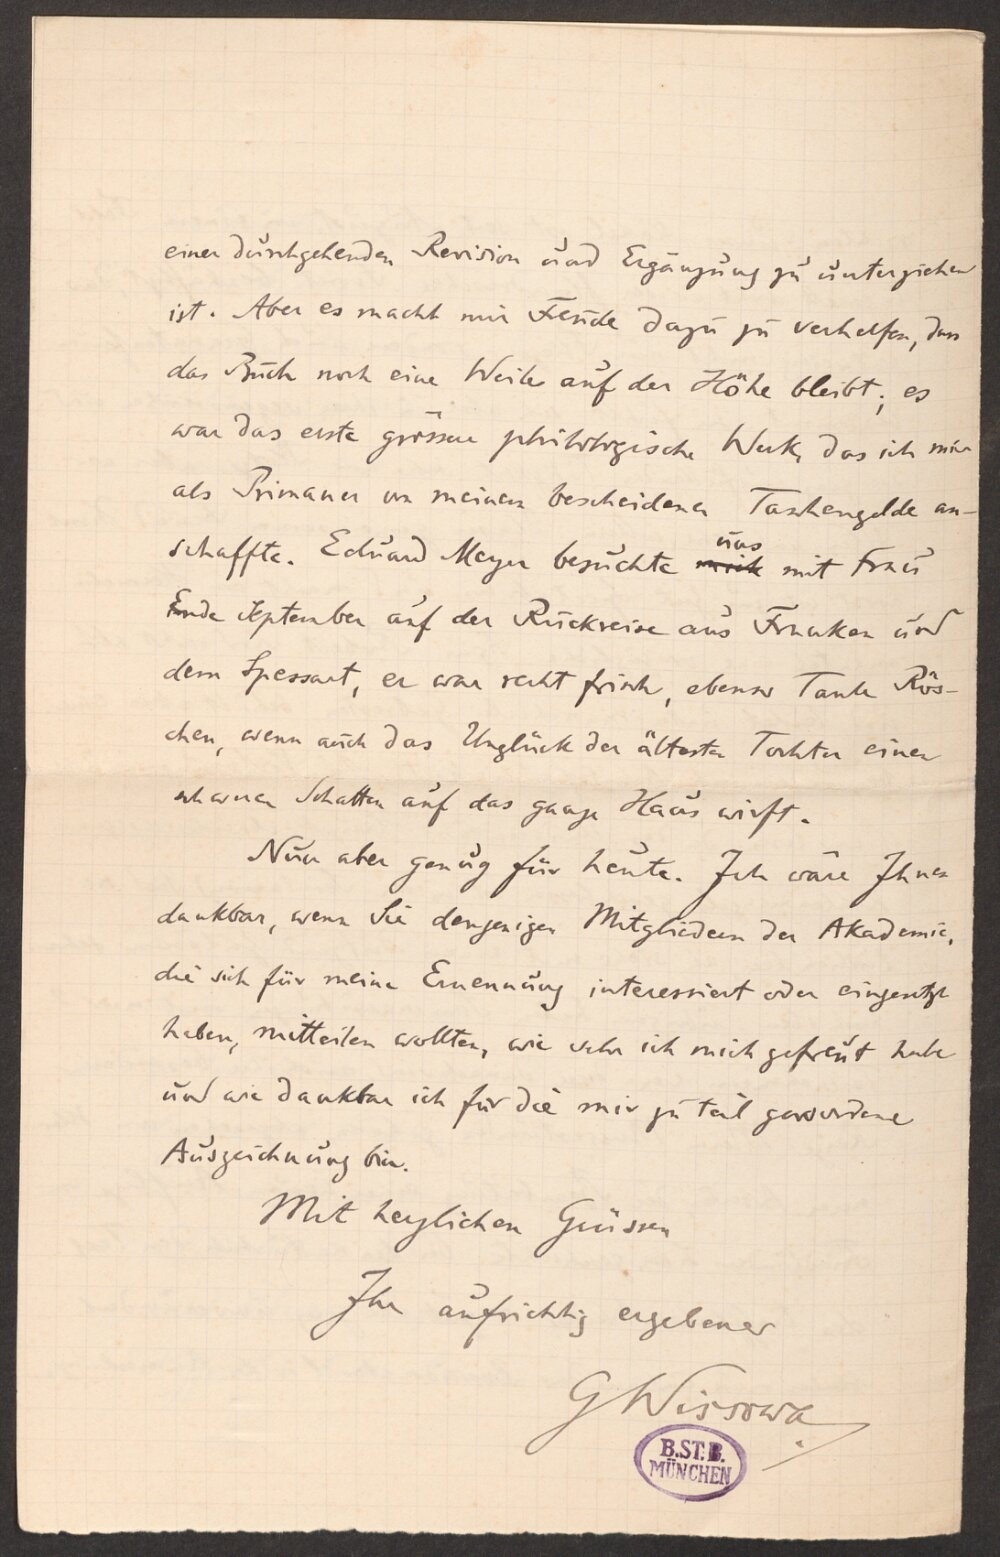 einer durchgehenden Revision und Ergänzung zu unterziehen
ist. Aber es macht mir Freude dazu zu verhelfen, dass
das Buch noch eine Weile auf der Höhe bleibt; es
war das erste grössere philologische Werk, das ich mir
als Primaner von meinem bescheidenen Taschengelde an-
schaffte. Eduard Meyer besuchte mich uns mit Frau
Ende September auf der Rückreise aus Franken und
dem Spessart, er war recht frisch, ebenso Tante Rös-
chen, wenn auch das Unglück der ältesten Tochter einen
schweren Schatten auf das ganze Haus wirft.
Nun aber genug für heute. Ich wäre Ihnen
dankbar, wenn Sie denjenigen Mitgliedern der Akademie,
die sich für meine Ernennung interessiert oder eingesetzt
haben, mitteilen wollten, wie sehr ich mich gefreut habe
und wie dankbar ich für die mir zu teil gewordene
Auszeichnung bin.
Mit herzlichen Grüssen
Ihr aufrichtig ergebener
G Wissowa.
B.ST.B.
MÜNCHEN